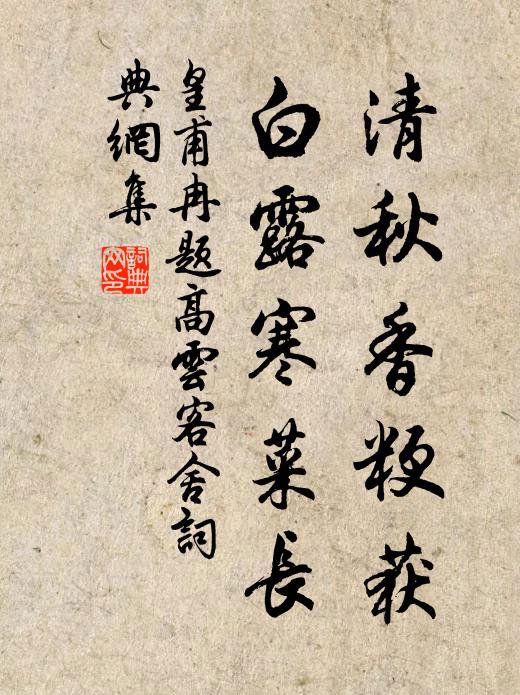 清秋香粳获
白露寒菜長
皇甫冉题高雲客舍詞
典網集
詞典
文印